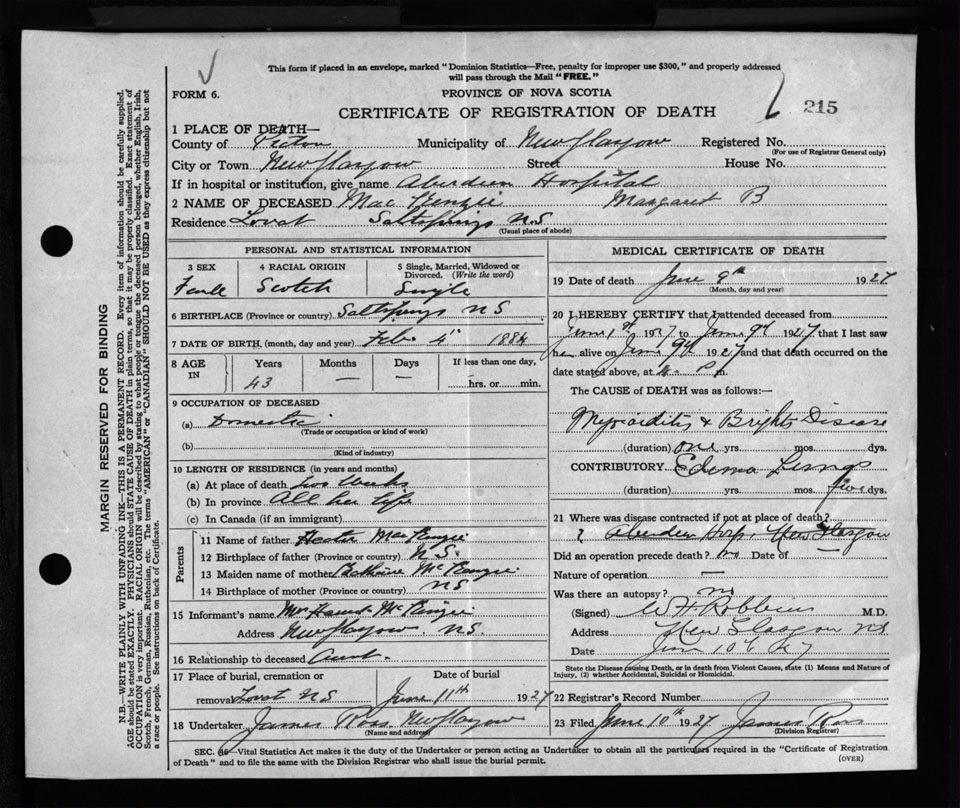 This form if placed in an envelope, marked "Dominion Statistics—Free, penalty for improper use $300," and properly addressed
will pass through the Mail "FREE."
FORM 6.
PROVINCE OF NOVA SCOTIA
CERTIFICATE OF REGISTRATION OF DEATH
215
1 PLACE OF DEATH—
County of Pictou Municipality of New Glasgow Registered No.
(For use of Registrar General only)
City or Town New Glasgow Street House No.
If in hospital or institution, give name Aberdeen Hospital
2 NAME OF DECEASED MacKenzie Margaret B
Residence Lovat Saltsprings N.S
(Usual place of abode)
PERSONAL AND STATISTICAL INFORMATION
3 SEX 4 RACIAL ORIGIN 5 Single, Married, Widowed or
Divorced. (Write the word)
Female Scotch Single
6 BIRTHPLACE (Province or country) Saltsprings N S
7 DATE OF BIRTH (month, day and year) Feb. 4 1884
8 AGE IN Years Months Days If less than one day,
43 — — hrs. or min.
9 OCCUPATION OF DECEASED
(a) Domestic
(Trade or occupation or kind of work)
(b)
(Kind of industry)
10 LENGTH OF RESIDENCE (in years and months)
(a) At place of death two weeks
(b) In province All her life
(c) In Canada (if an immigrant)
Parents
11 Name of father Hector MacKenzie
12 Birthplace of father (Province or country) N.S.
13 Maiden name of mother McKenzie
14 Birthplace of mother (Province or country) NS
15 Informant's name Mrs McKenzie
Address New Glasgow N.S.
16 Relationship to deceased Aunt.
17 Place of burial, cremation or Date of burial
removal Lovat N S June 11th 1927
18 Undertaker James Ross New Glasgow
(Name and address)
MEDICAL CERTIFICATE OF DEATH
19 Date of death June 9th 1927
(Month, day and year)
20 I HEREBY CERTIFY that I attended deceased from
June 1st 1927 to June 9th 1927 that I last saw
her alive on June 9th 1927 and that death occurred on the
date stated above, at 4. P. m.
The CAUSE of DEATH was as follows:—
Myocarditis & Brights Disease
(duration) one yrs. mos. dys.
CONTRIBUTORY Edema Lungs
(duration) yrs. mos. five dys.
21 Where was disease contracted if not at place of death?
? Aberdeen Hosp, New Glasgow
Did an operation precede death? no Date of —
Nature of operation —
Was there an autopsy? no
(Signed) W H Robbins M.D.
Address New Glasgow NS
Date June 10 27
State the Disease causing Death, or in death from Violent Causes, state (1) Means and Nature of
Injury, (2) whether Accidental, Suicidal or Homicidal.
22 Registrar's Record Number
23 Filed June 10th 1927 James Ross
(Division Registrar)
SEC. 36—Vital Statistics Act makes it the duty of the Undertaker or person acting as Undertaker to obtain all the particulars required in the "Certificate of Registration
of Death" and to file the same with the Division Registrar who shall issue the burial permit.
(OVER)
MARGIN RESERVED FOR BINDING
N.B.—WRITE PLAINLY WITH UNFADING INK—THIS IS A PERMANENT RECORD. Every item of information should be carefully supplied.
AGE should be stated EXACTLY. PHYSICIANS should STATE CAUSE OF DEATH in plain terms, so that it may be properly classified. Exact statement of
OCCUPATION is very important. RACIAL ORIGIN will be described by stating to what people or tongue the deceased person belonged, whether English, Irish,
Scotch, French, German, Russian, Ruthenian, etc. The terms "AMERICAN" or "CANADIAN" SHOULD NOT BE USED as they express citizenship but not
a race or people. See instructions on back of Certificate.